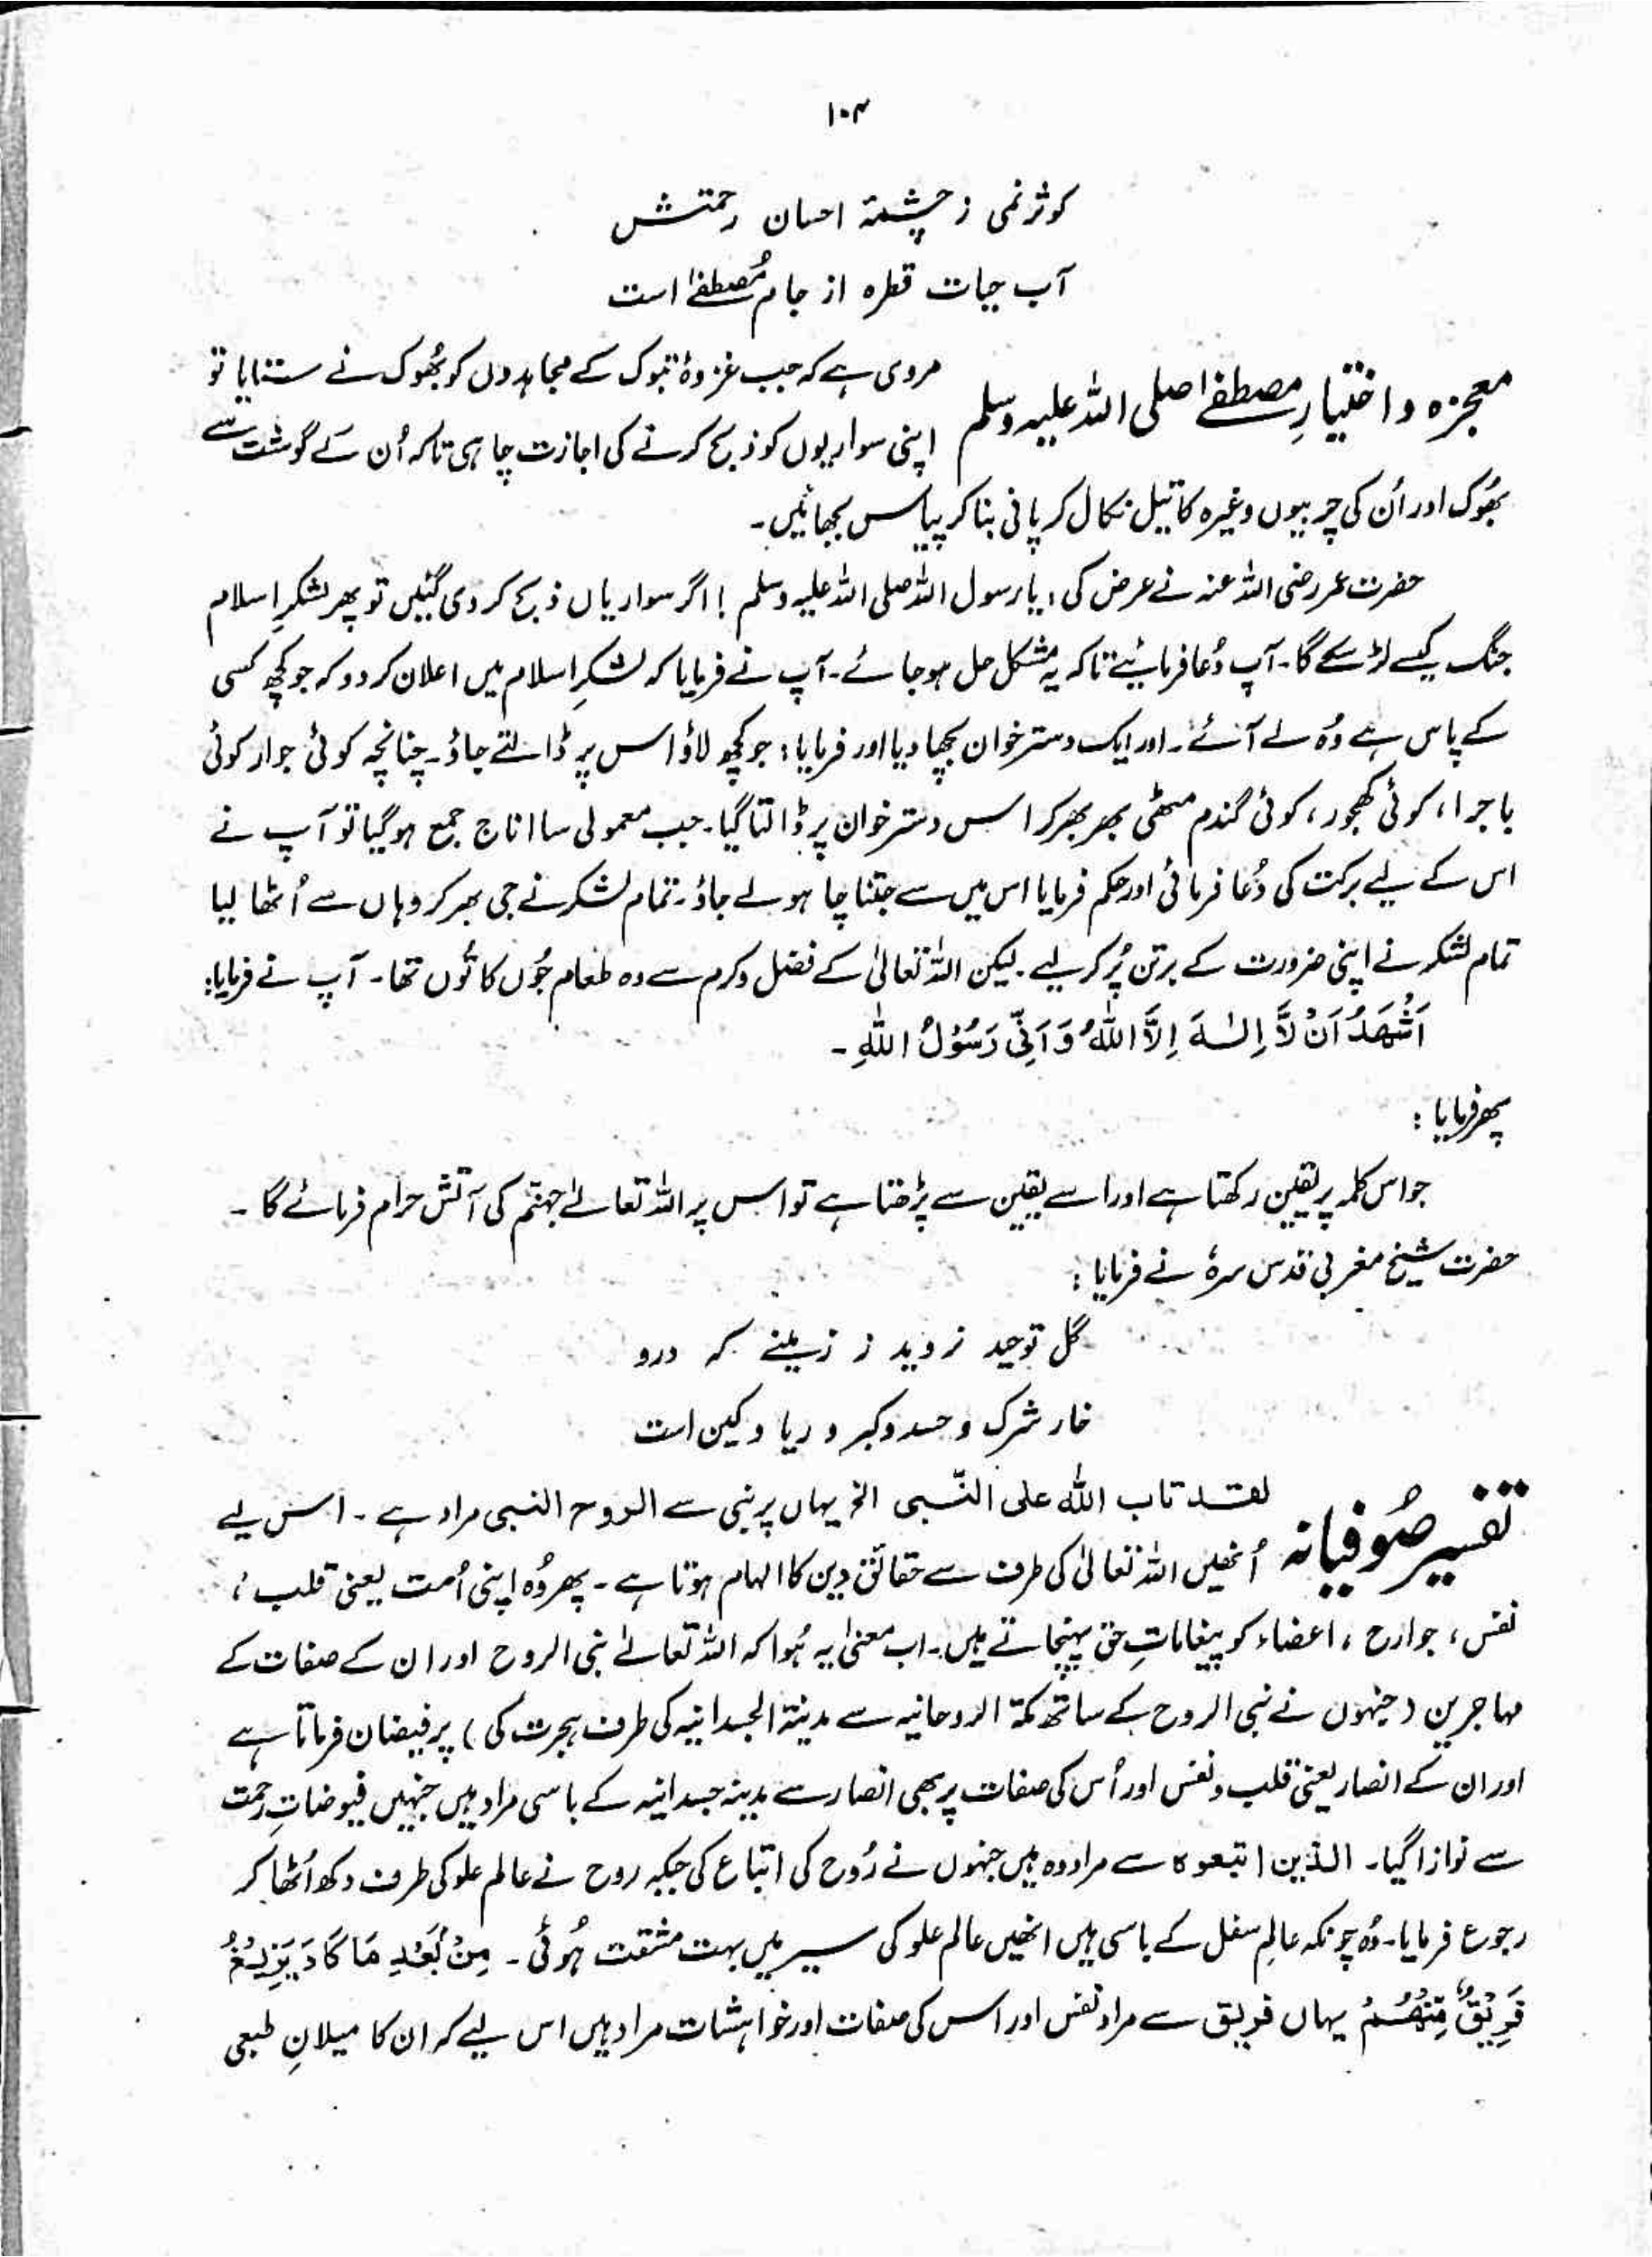 ۱۰۴
کوثر نمی ز چشمۂ احسان رحمتش
آب حیات قطرہ از جام مُصطفےٰ است
معجزہ و اختیارِ مصطفےٰ صلی اللہ علیہ وسلم مروی ہے کہ جب غزوۂ تبوک کے مجاہدوں کو بُھوک نے ستایا تو
اپنی سواریوں کو ذبح کرنے کی اجازت چاہی تاکہ اُن کے گوشت سے
بُھوک اور اُن کی چربیوں وغیرہ کا تیل نکال کر پانی بنا کر پیاس بجھائیں۔
حضرت عمر رضی اللہ عنہ نے عرض کی: یا رسول اللہ صلی اللہ علیہ وسلم! اگر سواریاں ذبح کر دی گئیں تو پھر لشکرِ اسلام
جنگ کیسے لڑ سکے گا۔ آپ دُعا فرمائیے تاکہ یہ مشکل حل ہو جائے۔ آپ نے فرمایا کہ لشکرِ اسلام میں اعلان کر دو کہ جو کچھ کسی
کے پاس ہے وُہ لے آئے۔ اور ایک دسترخوان بچھا دیا اور فرمایا: جو کچھ لاؤ اس پر ڈالتے جاؤ۔ چنانچہ کوئی جوار کوئی
باجرا، کوئی کھجور، کوئی گندم مٹھی بھر بھر کر اس دسترخوان پر ڈالتا گیا۔ جب معمولی سا اناج جمع ہو گیا تو آپ نے
اس کے لیے برکت کی دُعا فرمائی اور حکم فرمایا اس میں سے جتنا چاہو لے جاؤ۔ تمام لشکر نے جی بھر کر وہاں سے اُٹھا لیا
تمام لشکر نے اپنی ضرورت کے برتن پُر کر لیے۔ لیکن اللہ تعالیٰ کے فضل و کرم سے وہ طعام جُوں کا تُوں تھا۔ آپ نے فرمایا:
اَشْهَدُ اَنْ لَّا اِلٰهَ اِلَّا اللّٰهُ وَ اَنِّیْ رَسُوْلُ اللّٰهِ ۔
پھر فرمایا:
جو اس کلمہ پر یقین رکھتا ہے اور اسے یقین سے پڑھتا ہے تو اس پر اللہ تعالےٰ جہنّم کی آتش حرام فرمائے گا۔
حضرت شیخ مغربی قدس سرہٗ نے فرمایا:
گل توحید نروید ز زمینے کہ درو
خار شرک و حسد و کبر و ریا و کین است
تفسیر صُوفیانہ لقد تاب اللہ علی النّبی الخ یہاں پر نبی سے الروح النبی مراد ہے۔ اس لیے
اُنھیں اللہ تعالیٰ کی طرف سے حقائق دین کا الہام ہوتا ہے۔ پھر وُہ اپنی اُمت یعنی قلب،
نفس، جوارح، اعضاء کو پیغاماتِ حق پہنچاتے ہیں۔ اب معنیٰ یہ ہُوا کہ اللہ تعالےٰ نبی الروح اور ان کے صفات کے
مہاجرین (جنہوں نے نبی الروح کے ساتھ مکۃ الروحانیہ سے مدینۃ الجسدانیہ کی طرف ہجرت کی) پر فیضان فرماتا ہے
اور ان کے انصار یعنی قلب و نفس اور اُس کی صفات پر بھی انصار سے مدینہ جسدانیہ کے باسی مراد ہیں جنہیں فیوضاتِ رحمت
سے نوازا گیا۔ الذین اتبعوہ سے مراد وہ ہیں جنہوں نے رُوح کی اتباع کی جبکہ روح نے عالم علو کی طرف دکھ اُٹھا کر
رجوع فرمایا۔ وُہ چونکہ عالمِ سفل کے باسی ہیں انھیں عالم علو کی سیر میں بہت مشقت ہُوئی۔ مِنْۢ بَعْدِ مَا كَادَ یَزِیْغُ
فَرِیْقٌ مِّنْهُمْ یہاں فریق سے مراد نفس اور اس کی صفات اور خواہشات مراد ہیں اس لیے کہ ان کا میلانِ طبعی